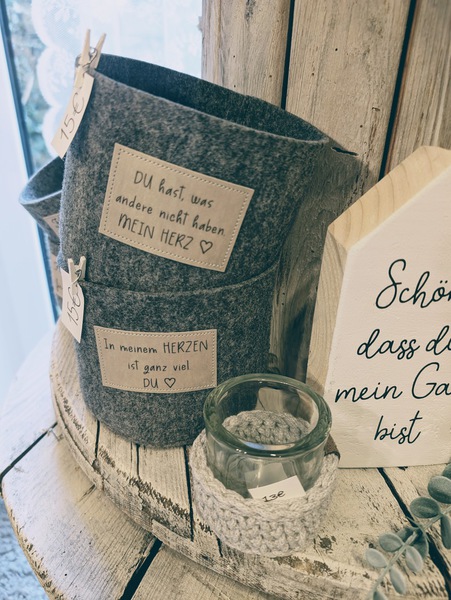 15€
DU hast, was
andere nicht haben.
MEIN HERZ ♡
15€
In meinem HERZEN
ist ganz viel
DU ♡
13€
Schön
dass du
mein Ga
bist